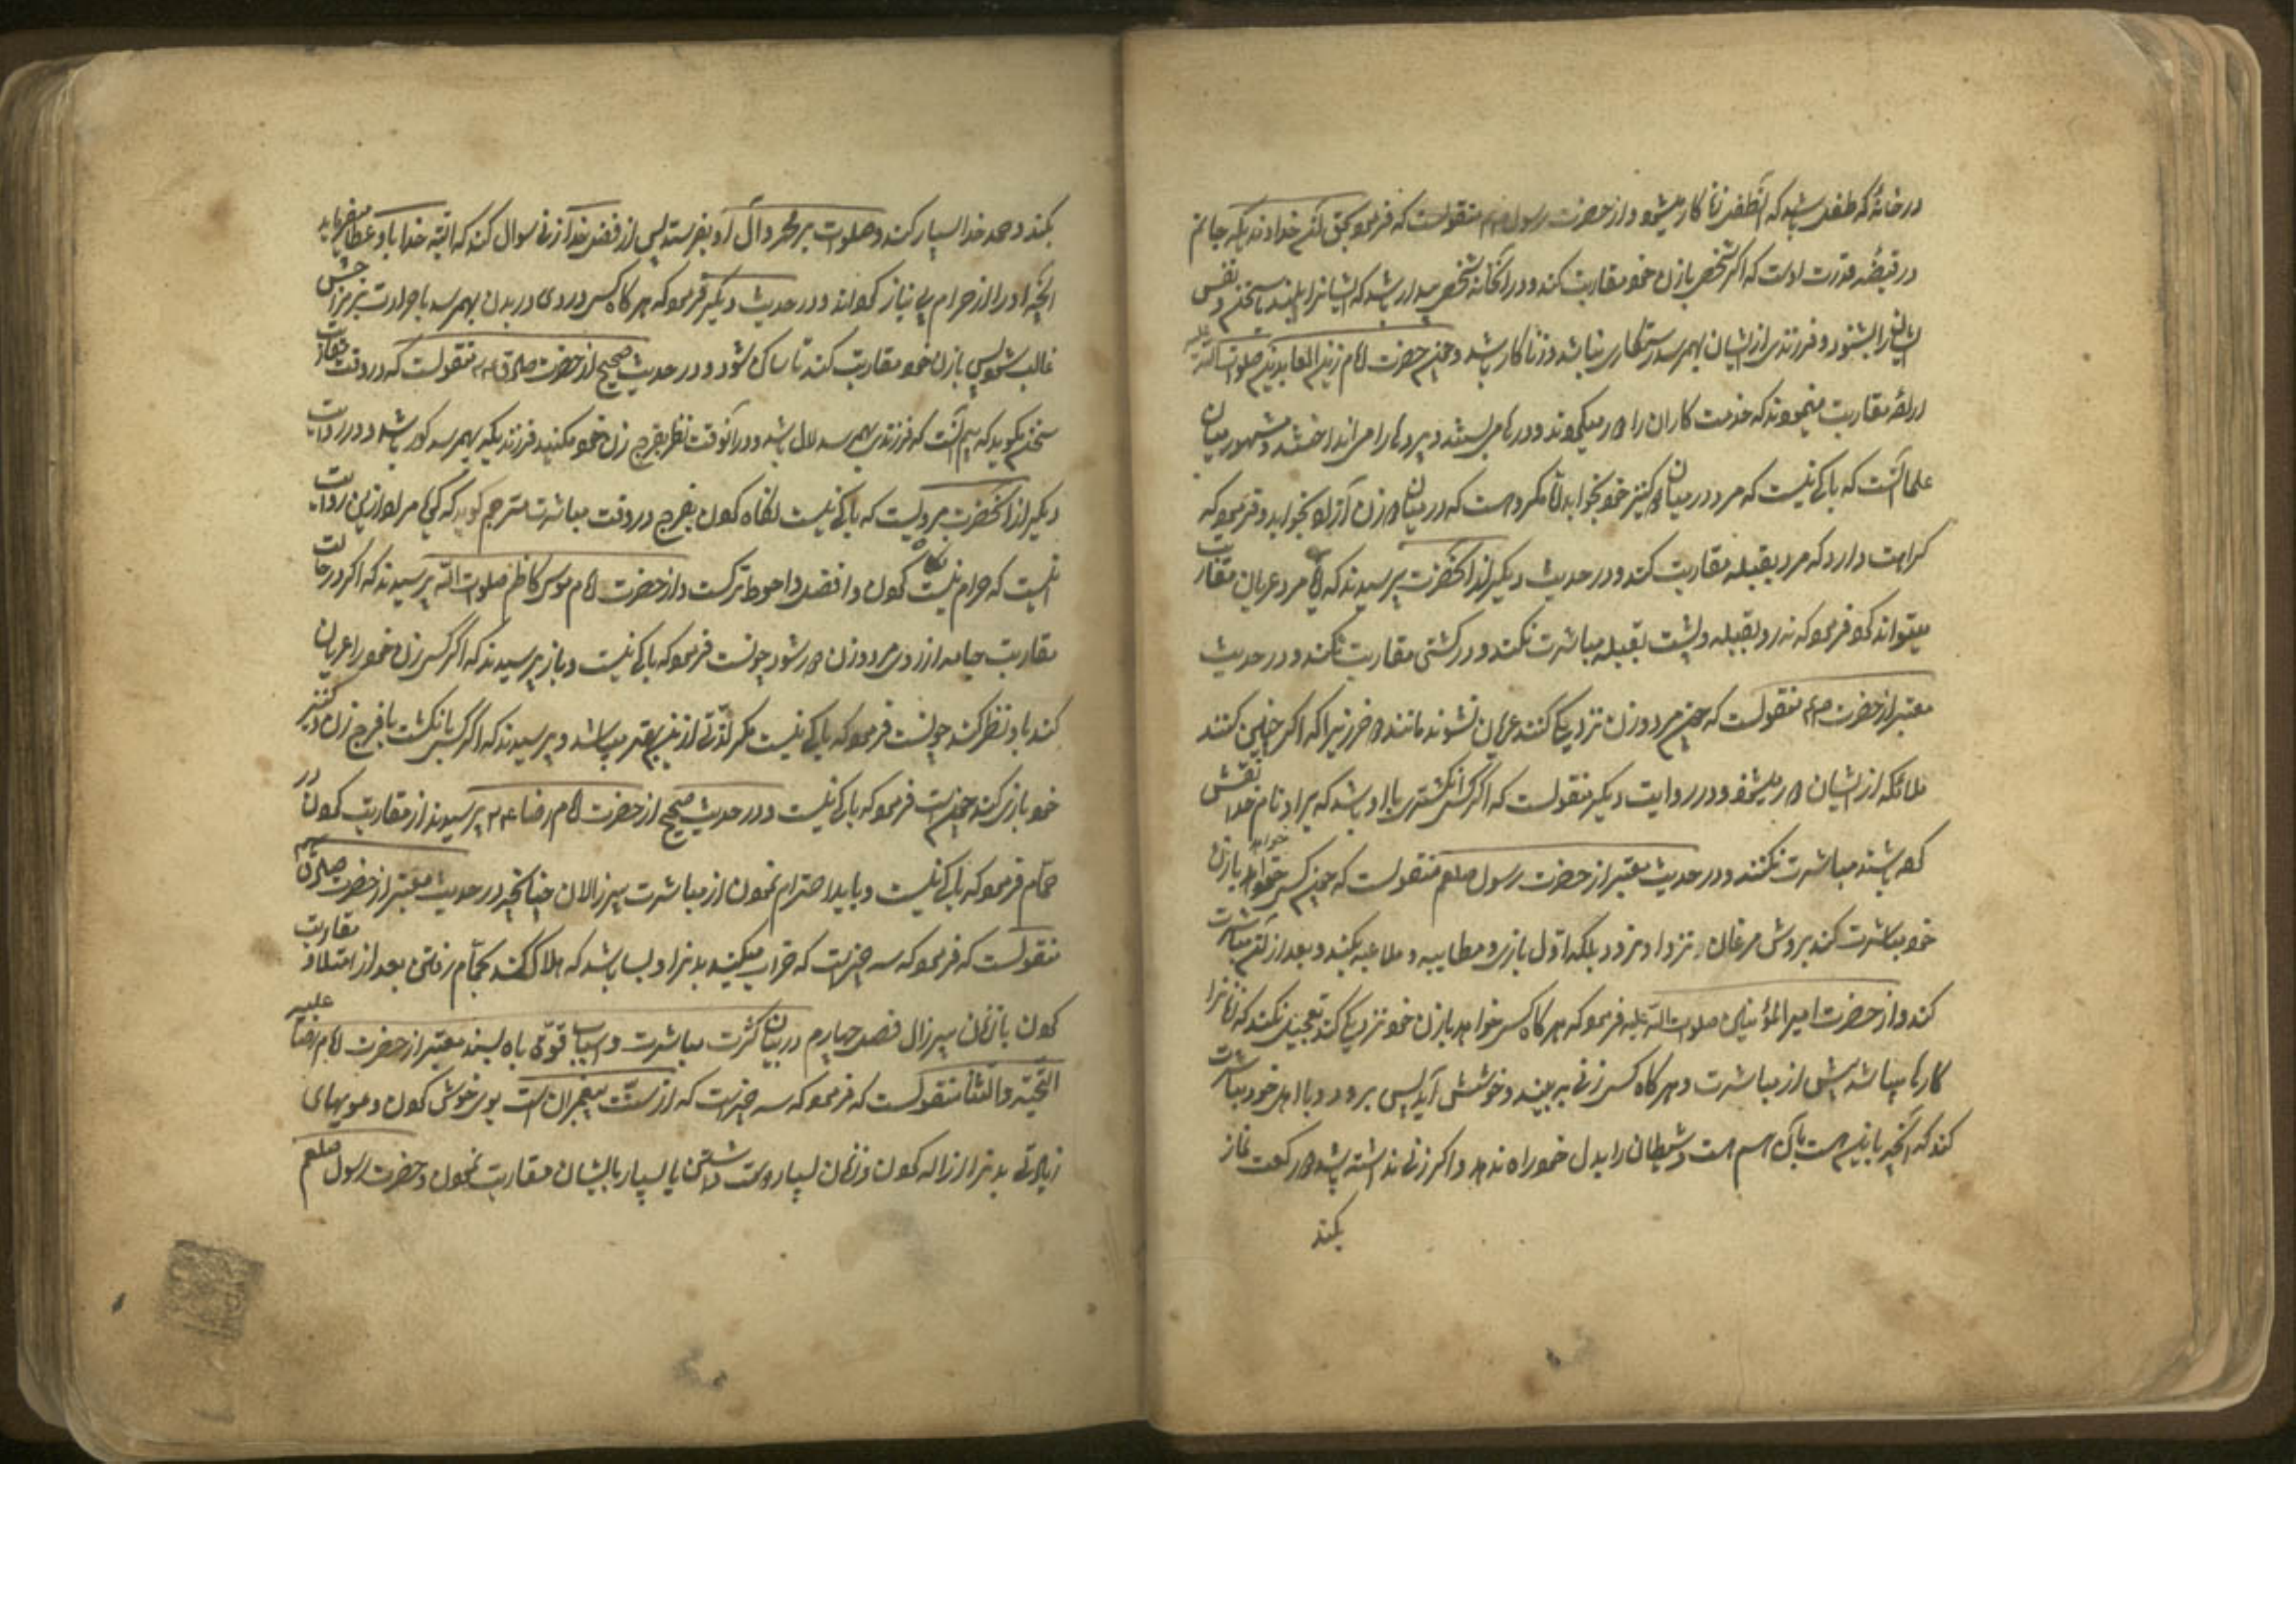 در خانهٔ که طفلی باشد که آن طفل زنا کار میشود و از حضرت رسول ص منقولست که فرمود بحق آن خداوندیکه جانم
در قبضهٔ قدرت اوست که اگر شخصی با زن خود مقاربت کند و در آن خانه شخصی بیدار باشد که ایشانرا ببیند یا سخن و نفس
ایشانرا بشنود و فرزندی از ایشان بهم رسد رستگاری نباشد و زنا کار باشد و چون حضرت امام زین العابدین صلوات الله علیه
ارادهٔ مقاربت مینمودند که خدمت کاران را دور میکردند و درها میبستند و پرده ها را می انداختند و مشهور میان
علما آنست که باکی نیست که مرد در میان دو کنیز خود بخوابد اما مکروهست که در میان دو زن آزاد بخوابد و فرمود که
کراهت دارد که مرد بقبله مقاربت کند و در حدیث دیگر از آنحضرت پرسیدند که آیا مرد عریان مقاربت
میتواند کرد فرمود که نه رو بقبله و پشت بقبله مباشرت نکند و در کشتی مقاربت نکند و در حدیث
معتبر از حضرت منقولست که چون مرد و زن نزدیکی کنند عریان نشوند مانند دو خر زیرا که اگر چنین کنند
ملائکه از ایشان دور میشود و در روایت دیگر منقولست که اگر کسی انگشتری با او باشد که بر او نام خدا نقش
کرده باشند مباشرت نکنند و در حدیث معتبر از حضرت رسول صلعم منقولست که چون کسی خواهد با زن
خود مباشرت کند بروش مرغان نزد او نرود بلکه اول بازی و مطایبه و ملاعبه بکند و بعد از آن مباشرت
کند و از حضرت امیر المؤمنین صلوات الله علیه فرمود که هر گاه کسی خواهد با زن خود نزدیکی کند تعجیل نکند که زنانرا
کارها میباشد پیش از مباشرت و هر گاه کسی زنی ببیند و خوشش آید پس برود و با اهل خود مباشرت
کند که آنچه با این هست با آن هم هست و شیطان را بدل خود راه ندهد و اگر زنی نداشته باشد دو رکعت نماز
بکند
بکند و حمد خدا بسیار کند و صلوات بر محمد و آل او بفرستد پس از فضل خدا زنی سوال کند که البته خدا باو عطا میفرماید
آنچه او را از حرام بی نیاز گرداند و در حدیث دیگر فرمود که هر گاه کسی دردی در بدن بهم رسد یا حرارت بر مزاجش
غالب شود پس با زن خود مقاربت کند تا ساکن شود و در حدیث صحیح از حضرت صادق ع منقولست که در وقت مقاربت
سخن مگوئید که بیم آنست که فرزندی بهم رسد لال باشد و در آنوقت نظر بفرج زن خود مکنید فرزندیکه بهم رسد کور باشد و در روایت
دیگر از آنحضرت مرویست که باکی نیست نگاه کردن بفرج در وقت مباشرت مترجم گوید که گویا مراد ازین روایت
اینست که حرام نیست نگاه کردن و افضل و احوط ترکست و از حضرت امام موسی کاظم صلوات الله پرسیدند که اگر در حالت
مقاربت جامه از روی مرد و زن دور شود چونست فرمود که باکی نیست و باز پرسیدند که اگر کسی زن خود را عریان
کند باو نظر کند چونست فرمود که باکی نیست مگر لذتی ازین بهتر میباشد و پرسیدند که اگر کسی بانگشت با فرج زن و کنیز
خود بازی کند چونست فرمود که باکی نیست و در حدیث صحیح از حضرت امام رضا ع پرسیدند از مقاربت کردن در
حمام فرمود که باکی نیست و باید احترام نمودن از مباشرت پیر زالان چنانچه در حدیث معتبر از حضرت صادق
منقولست که فرمود که سه چیزست که خراب میکند بدنرا و بسا باشد که هلاک کند بحمام رفتن بعد از امتلا و مقاربت
کردن با زنان پیرزال فصل چهارم در بیان کثرت مباشرت و اسباب قوّتی باه بسند معتبر از حضرت امام رضا علیه
التحیة والثنا منقولست که فرمود که سه چیزست که از سنّت پیغمبران است بوی خوش کردن و مویهای
زیادتی بدنرا ازاله کردن و زنان بسیار دوست داشتن یا بسیار با ایشان مقاربت نمودن و حضرت رسول صلعم